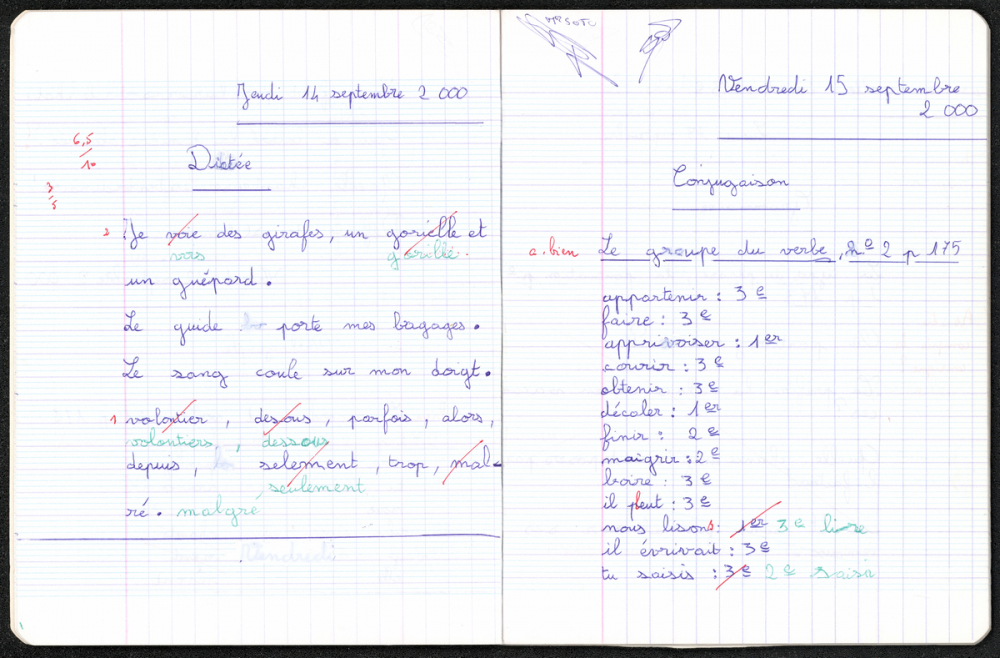 Jeudi 14 septembre 2 000
6,5
10
Dictée
3
5
2 Je voie des girafes, un gorielle et
vois gorille.
un guépard.
Le guide porte mes bagages.
Le sang coule sur mon doigt.
1 volontier, desous, parfois, alors,
volontiers, dessous
depuis, selement, trop, mal-
seulement
ré. malgré
Vendredi
Vendredi 15 septembre
2 000
Conjugaison
a. bien Le groupe du verbe, n° 2 p 175
appartenir : 3e
faire : 3e
apprivoiser : 1er
courir : 3e
obtenir : 3e
décaler : 1er
finir : 2e
maigrir : 2e
boire : 3e
il peut : 3e
nous lisons : 1er 3e lire
il évrivait : 3e
tu saisis : 3e 2e saisir